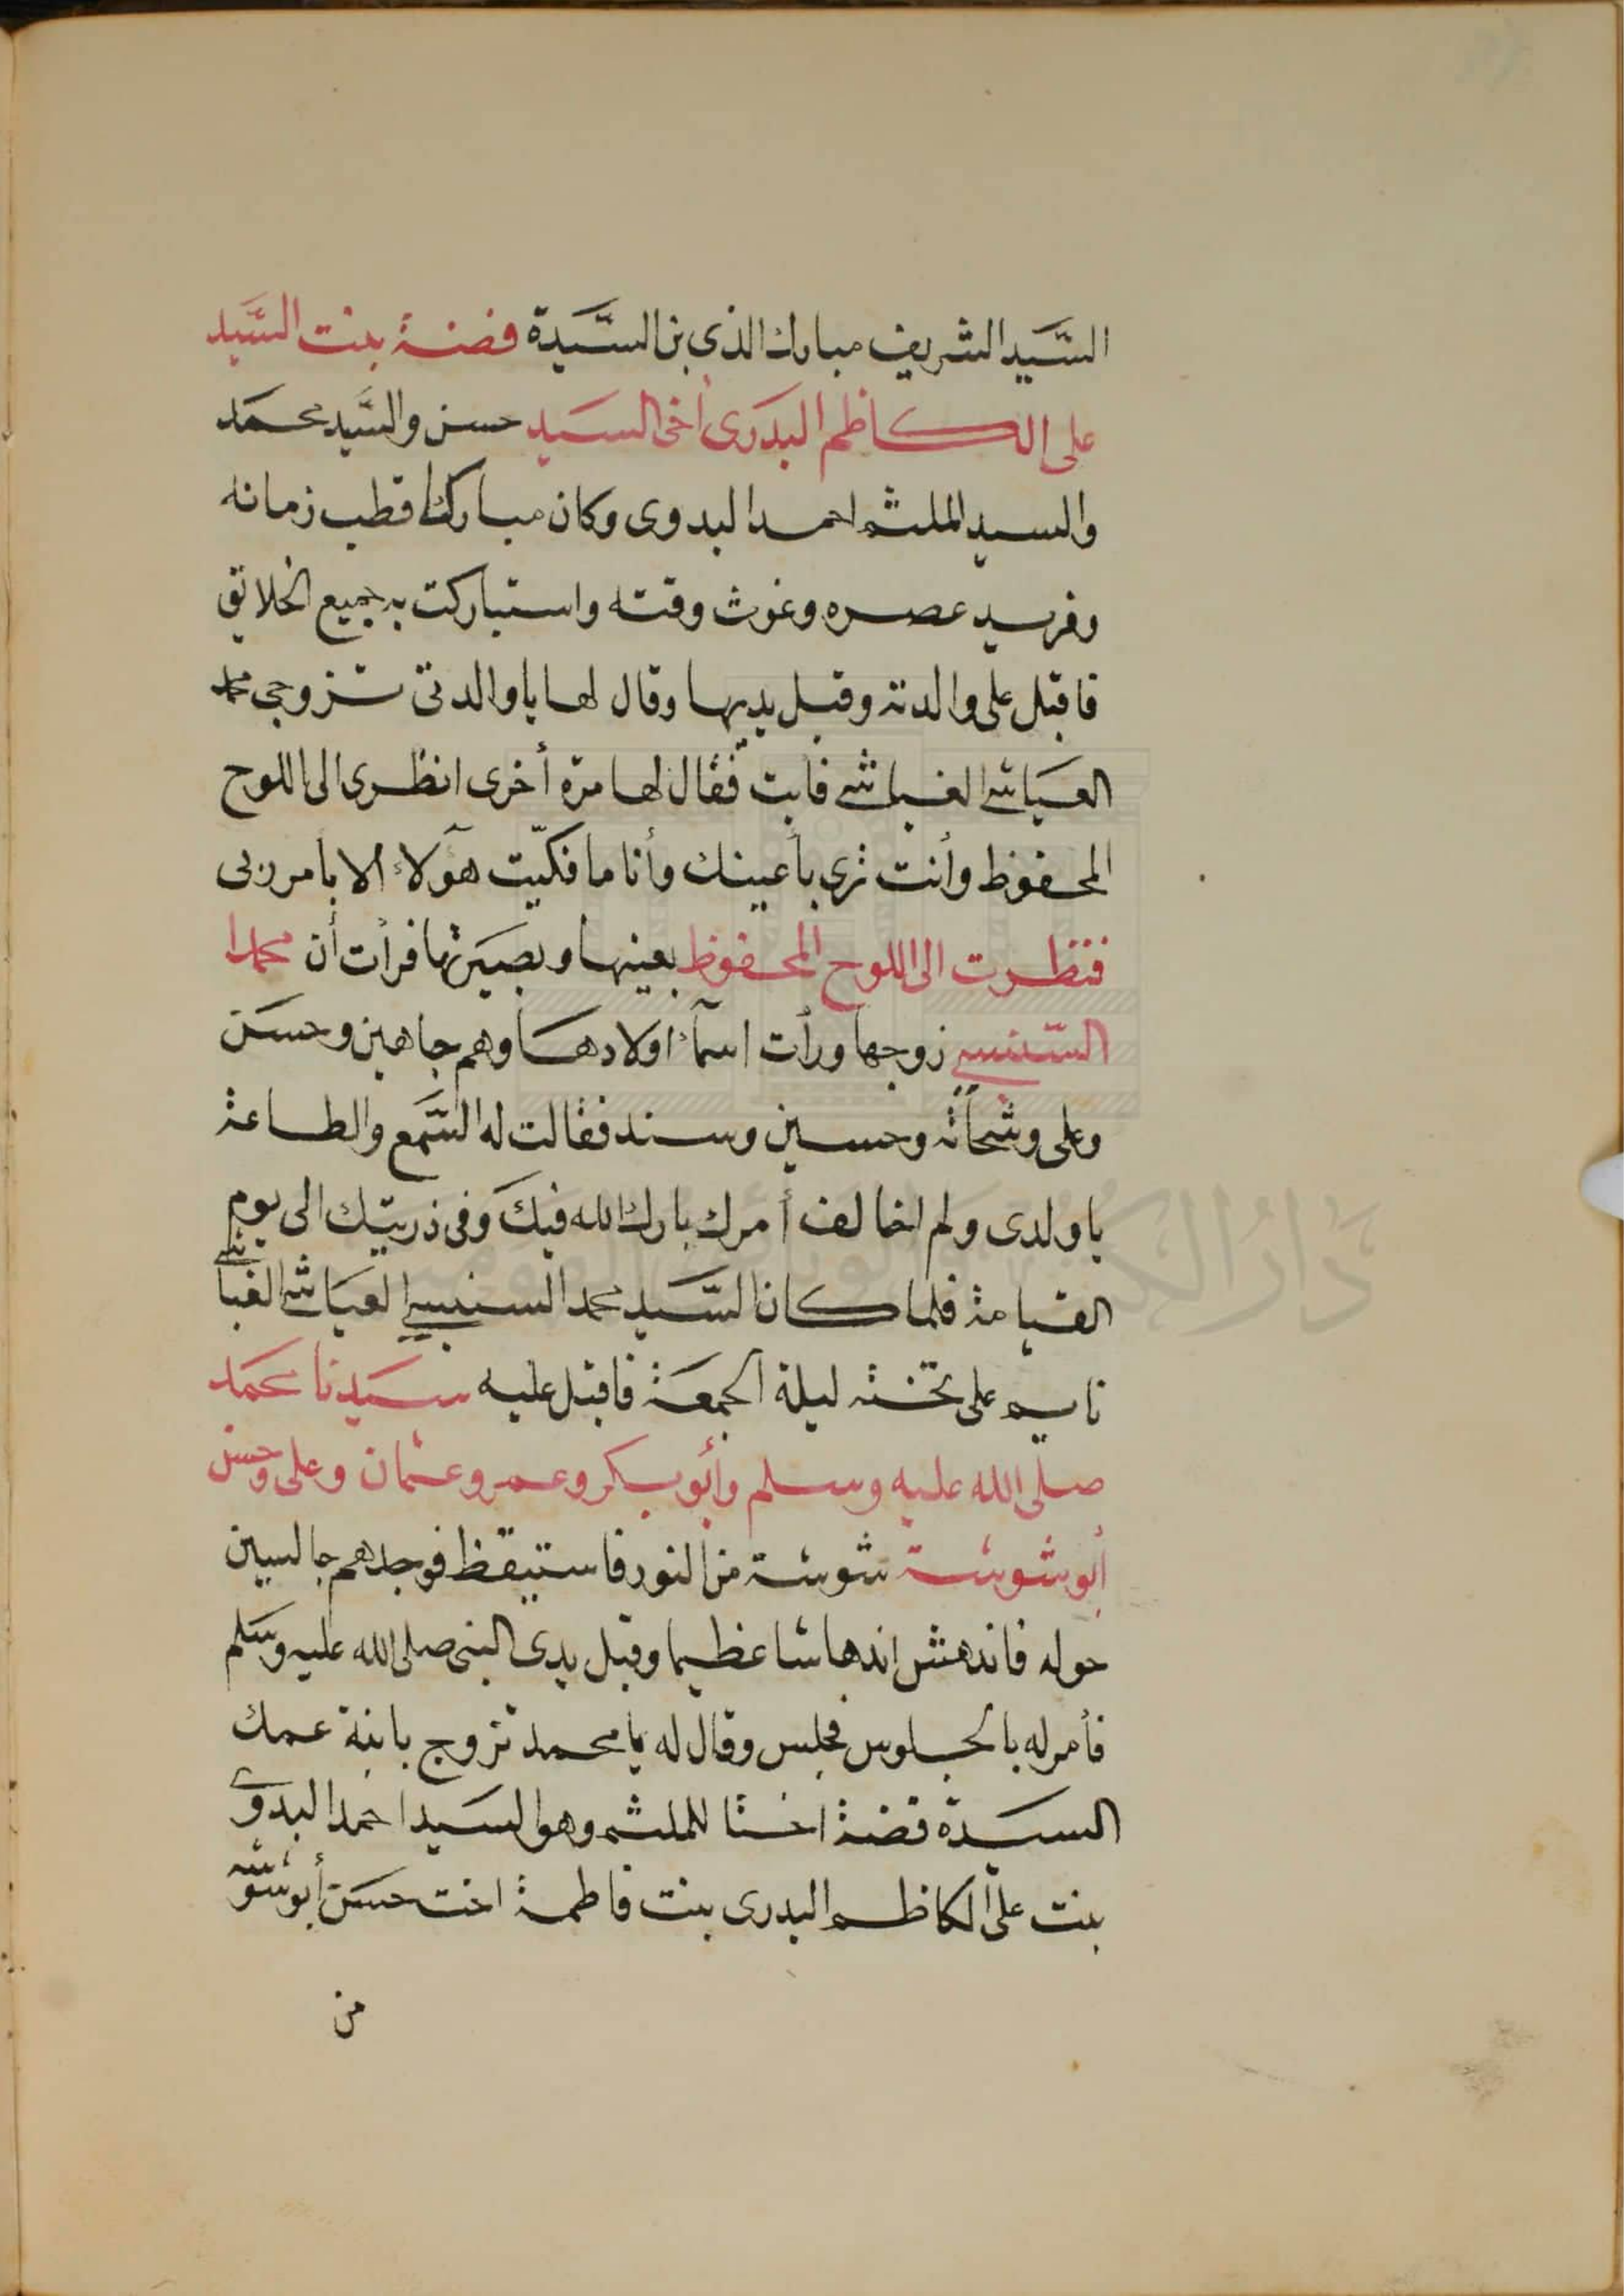 السَّيد الشريف مبارك الذى بن السَّيدة فضة بنت السَّيد
على الكاظم البدَرى أخى السَيد حسن والسَّيد محمَد
والسيد الملثم احمد البدوى وكان مباركا قطب زمانه
وفريد عصره وغوث وقته واستباركت به جميع الخلايق
فاقبل على والدته وقبل يديها وقال لها يا والدتى تتزوجى محمد
العيَاشى الغباشى فابت فقال لها مرّه أخرى انظرى الى اللوح
المحفوظ وأنت ترى بأعينك وأنا ما فكّيت هؤلاء الا بأمر ربى
فنظرت الى اللوح المحفوظ بعينها وبصيَرتها فرأت أن محمدا
السّنبسى زوجها ورأت اسمآء اولادها وهم جاهين وحسَن
وعلى وشحاتة وحسين وسند فقالت له السَّمع والطاعة
يا ولدى ولم اخالف أمرك بارك الله فيكَ وفى ذريتك الى يوم
القيامة فلما كان السَّيد محمد السنبسى العيَاشى الغباشى
نايم على تخته ليلة الجمعَة فاقبل عليه سَيدنا محمَد
صلى الله عليه وسلم وأبو بكر وعمر وعثمان وعلى وحسن
أبو شوشة شوشة من النور فاستيقظ فوجدهم جالسين
حوله فاندهش اندهاشا عظيما وقبل يدى النبى صلى الله عليه وسَلم
فأمر له بالجلوس فجلس وقال له يا محمد تزوج بابنة عمك
السَيدة فضة اختا للملثم وهو السَيد احمد البدوى
بنت علىّ الكاظم البدرى بنت فاطمة اخت حسَن أبو شوشة
من
دار الكتب والوثائق القومية